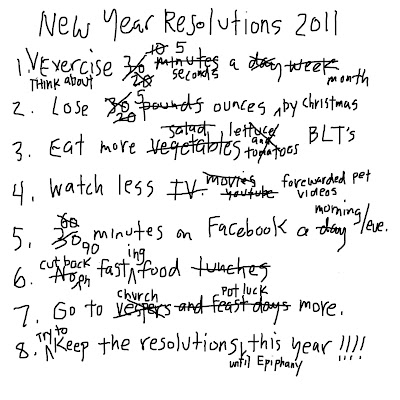 New Year Resolutions 2011
10 5
1. Exercise 30 minutes a day week
Think about 20 seconds month
5
2. Lose 30 pounds ounces by christmas
20
salad lettuce and BLT's
3. Eat more vegetables tomatoes
movies forewarded pet
4. Watch less TV. youtube videos
60 morning
5. 30 minutes on Facebook a day /eve.
90
cut back ing
6. No fast food lunches
on
church potluck
7. Go to vespers and feast days more.
try to
8. Keep the resolutions this year !!!!
until Epiphany